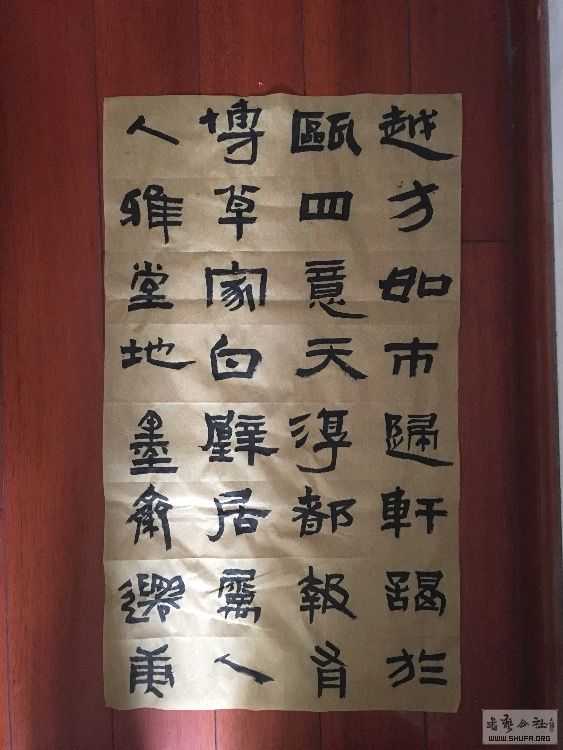 越方如市歸軒謁於
甌四意天淂都報
博草家白壁居人
人雅堂地墨衡庚
書藝公社
WWW.SHUFA.ORG